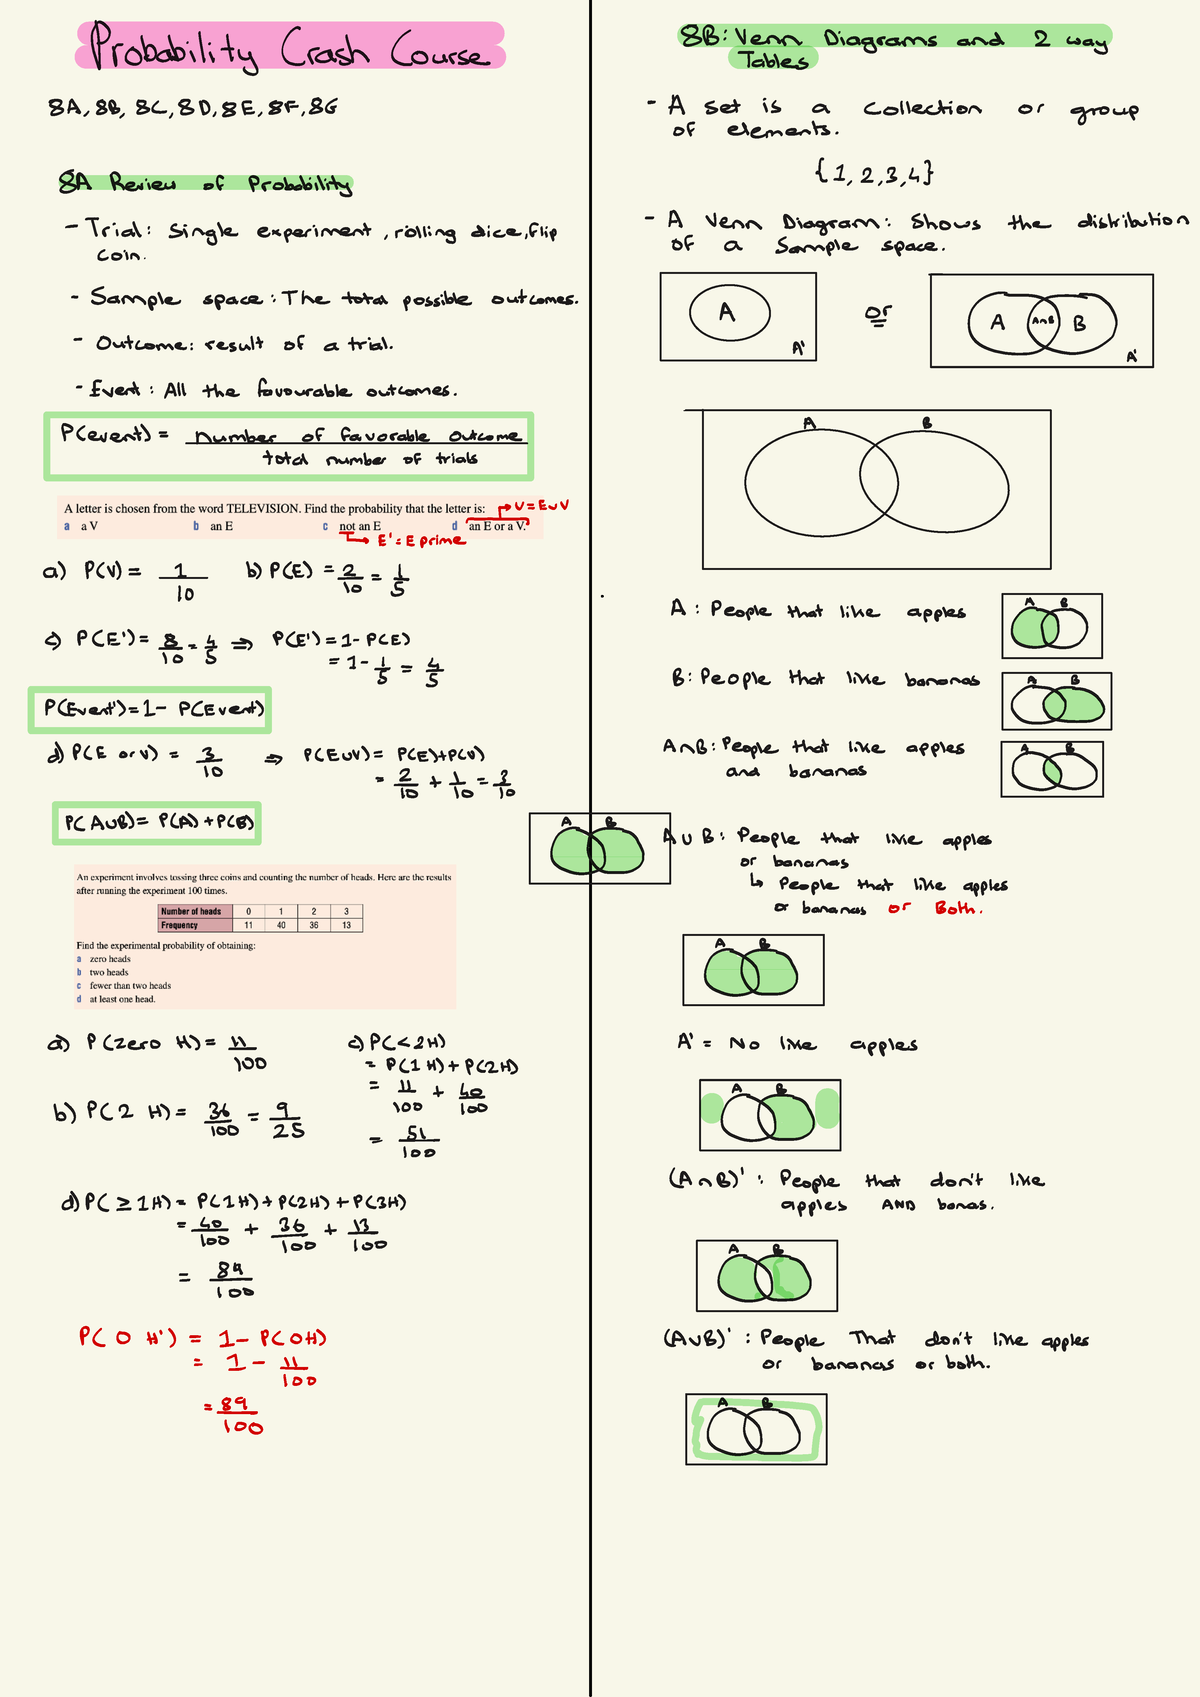 Probability Crash Course
8A, 8B, 8C, 8D, 8E, 8F, 8G
8A Review of Probability
- Trial: Single experiment, rolling dice, flip
coin.
- Sample space: The total possible outcomes.
- Outcome: result of a trial.
- Event: All the favourable outcomes.
P(event) = number of favorable outcome
total number of trials
A letter is chosen from the word TELEVISION. Find the probability that the letter is:
→ V = E∪V
a a V b an E c not an E d an E or a V.
→ E' = E prime
a) P(V) = 1/10 b) P(E) = 2/10 = 1/5
c) P(E') = 8/10 = 4/5 ⇒ P(E') = 1 - P(E)
= 1 - 1/5 = 4/5
P(Event') = 1 - P(Event)
d) P(E or V) = 3/10 ⇒ P(E∪V) = P(E)+P(V)
= 2/10 + 1/10 = 3/10
P(A∪B) = P(A) + P(B)
An experiment involves tossing three coins and counting the number of heads. Here are the results
after running the experiment 100 times.
Number of heads 0 1 2 3
Frequency 11 40 36 13
Find the experimental probability of obtaining:
a zero heads
b two heads
c fewer than two heads
d at least one head.
a) P(zero H) = 11/100
b) P(2 H) = 36/100 = 9/25
c) P(<2H)
= P(1H) + P(2H)
= 11/100 + 40/100
= 51/100
d) P(≥1H) = P(1H) + P(2H) + P(3H)
= 40/100 + 36/100 + 13/100
= 89/100
P(0 H') = 1 - P(0H)
= 1 - 11/100
= 89/100
8B: Venn Diagrams and 2 way
Tables
- A set is a collection or group
of elements.
{1, 2, 3, 4}
- A Venn Diagram: Shows the distribution
of a Sample space.
A
A'
or
A A∩B B
A'
A B
A: People that like apples
A B
B: People that like bananas
A B
A∩B: People that like apples
and bananas
A B
A B
A∪B: People that like apples
or bananas
↳ People that like apples
or bananas or Both.
A B
A' = No like apples
A B
(A∩B)': People that don't like
apples AND bonas.
A B
(A∪B)': People That don't like apples
or bananas or both.
A B